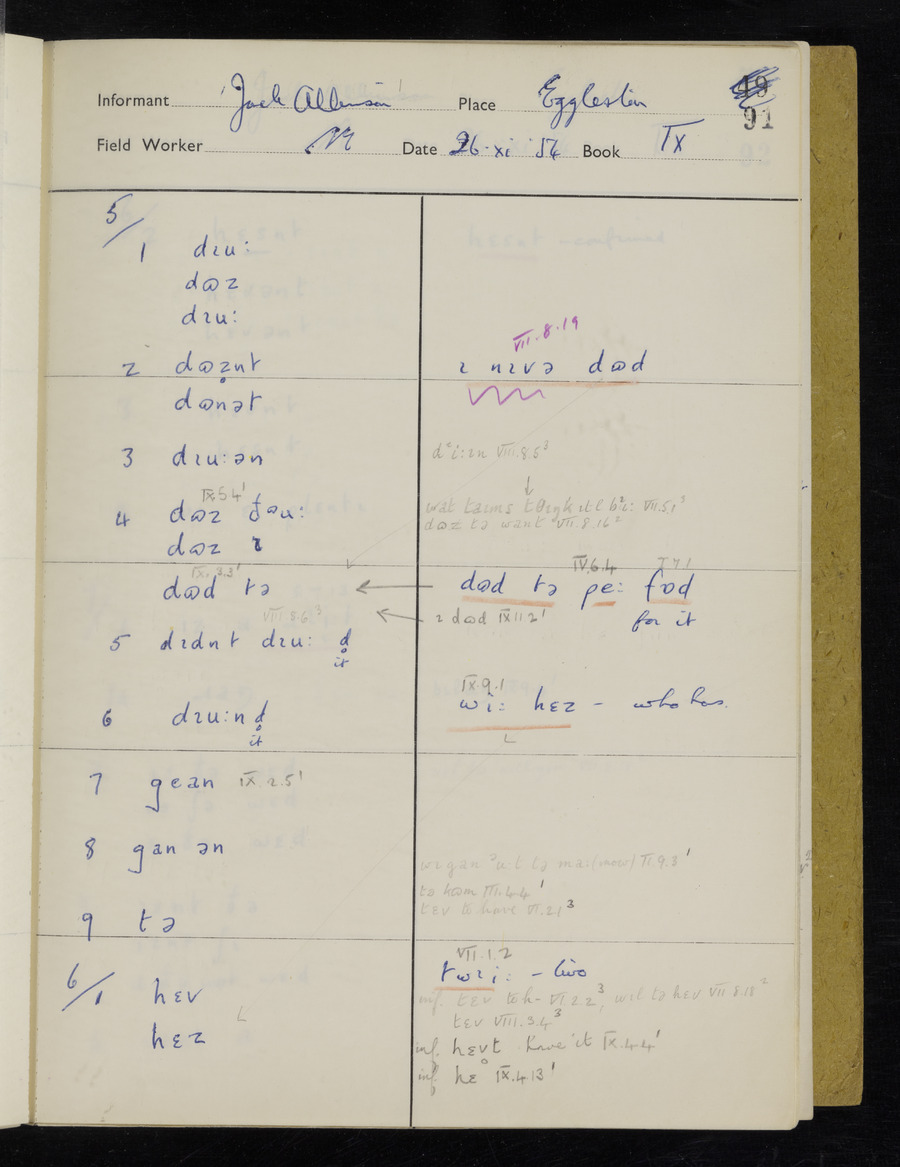 Informant 'Jack Allinson' Place Eggleston
91
Field Worker Date 26.xi 54 Book IX
5/
1 dɪu:
dɷz
dɪu:
VII.8.19
2 dɷzn̥t ɪ nɪvə dɷd
dɷnət
3 dɪu:ən dᶻi:ɪn VIII.8.5³
IX.5.4¹
4 dɷz ðəu: wat taɪms tθɪŋk ɪtl bᶻi: VII.5.1³
dɷz tə want VII.8.16²
dɷz ɪ
IX.3.3¹ IV.6.4 I.7.1
dɷd tə ← dɷd tə pe: fɒd
for it
VIII.8.6³ ← ɪ dɷd IX.11.2¹
5 dɪdnt dɪu: d̥
it
IX.9.1
6 dɪu:n d̥ wi: hɛz - who has.
it
7 gean IX.2.5¹
8 gan ən wɪ gan ᵊu.t tə ma:(mow) II.9.3¹
tə hɷm III.4.4¹
tɛv to have VI.2.1³
9 tə
VII.1.2
6/1 hɛv twɪi: - two
inf. tɛv to h- VI.2.2³, wɪl tə hɛv VII.8.18²
tɛv VIII.3.4³
hɛz inf. hɛvt̥ have it IX.4.4¹
inf. hɛ IX.4.13¹